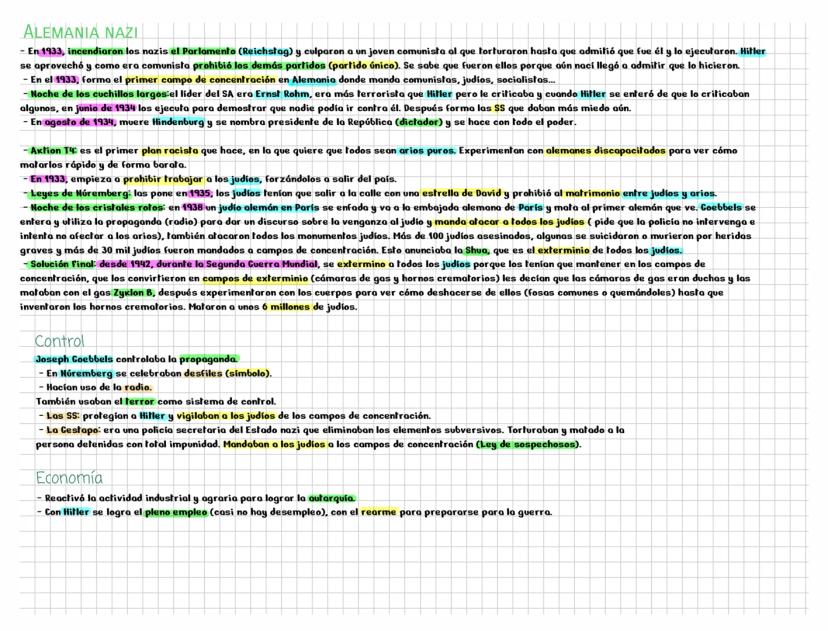 ALEMANIA NAZI
- En 1933, incendiaron los nazis el Parlamento (Reichstag) y culparon a un joven comunista al que torturaron hasta que admitió que fue él y lo ejecutaron. Hitler
se aprovechó y como era comunista prohibió los demás partidos (partido único). Se sabe que fueron ellos porque aún nací llegó a admitir que lo hicieron.
- En el 1933, forma el primer campo de concentración en Alemania donde manda comunistas, judíos, socialistas...
- Noche de los cuchillos largos: el líder del SA era Ernst Rohm, era más terrorista que Hitler pero le criticaba y cuando Hitler se enteró de que lo criticaban
algunos, en junio de 1934 los ejecuta para demostrar que nadie podía ir contra él. Después forma las SS que daban más miedo aún.
- En agosto de 1934, muere Hindenburg y se nombra presidente de la República (dictador) y se hace con todo el poder.
- Axtion T4: es el primer plan racista que hace, en la que quiere que todos sean arios puros. Experimentan con alemanes discapacitados para ver cómo
matarlos rápido y de forma barata.
- En 1933, empieza a prohibir trabajar a los judíos, forzándolos a salir del país.
- Leyes de Núremberg: las pone en 1935, los judíos tenían que salir a la calle con una estrella de David y prohibió al matrimonio entre judíos y arios.
- Noche de los cristales rotos: en 1938 un judío alemán en París se enfada y va a la embajada alemana de París y mata al primer alemán que ve. Goebbels se
entera y utiliza la propaganda (radio) para dar un discurso sobre la venganza al judío y manda atacar a todos los judíos ( pide que la policía no intervenga e
intenta no afectar a los arios), también atacaron todos los monumentos judíos. Más de 100 judíos asesinados, algunas se suicidaron o murieron por heridas
graves y más de 30 mil judíos fueron mandados a campos de concentración. Esto anunciaba la Shua, que es el exterminio de todos los judíos.
- Solución Final: desde 1942, durante la Segunda Guerra Mundial, se extermino a todos los judíos porque los tenían que mantener en los campos de
concentración, que los convirtieron en campos de exterminio (cámaras de gas y hornos crematorios) les decían que las cámaras de gas eran duchas y las
mataban con el gas Zyklon B, después experimentaron con los cuerpos para ver cómo deshacerse de ellos (fosas comunes o quemándoles) hasta que
inventaron los hornos crematorios. Mataron a unos 6 millones de judíos.
Control
Joseph Goebbels controlaba la propaganda.
- En Núremberg se celebraban desfiles (símbolo).
- Hacían uso de la radio.
También usaban el terror como sistema de control.
- Las SS: protegían a Hitler y vigilaban a los judíos de los campos de concentración.
- La Gestapo: era una policía secretaria del Estado nazi que eliminaban los elementos subversivos. Torturaban y matado a la
persona detenidas con total impunidad. Mandaban a los judíos a los campos de concentración (Ley de sospechosos).
Economía
- Reactivó la actividad industrial y agraria para lograr la autarquía.
- Con Hitler se logra el pleno empleo (casi no hay desempleo), con el rearme para prepararse para la guerra.